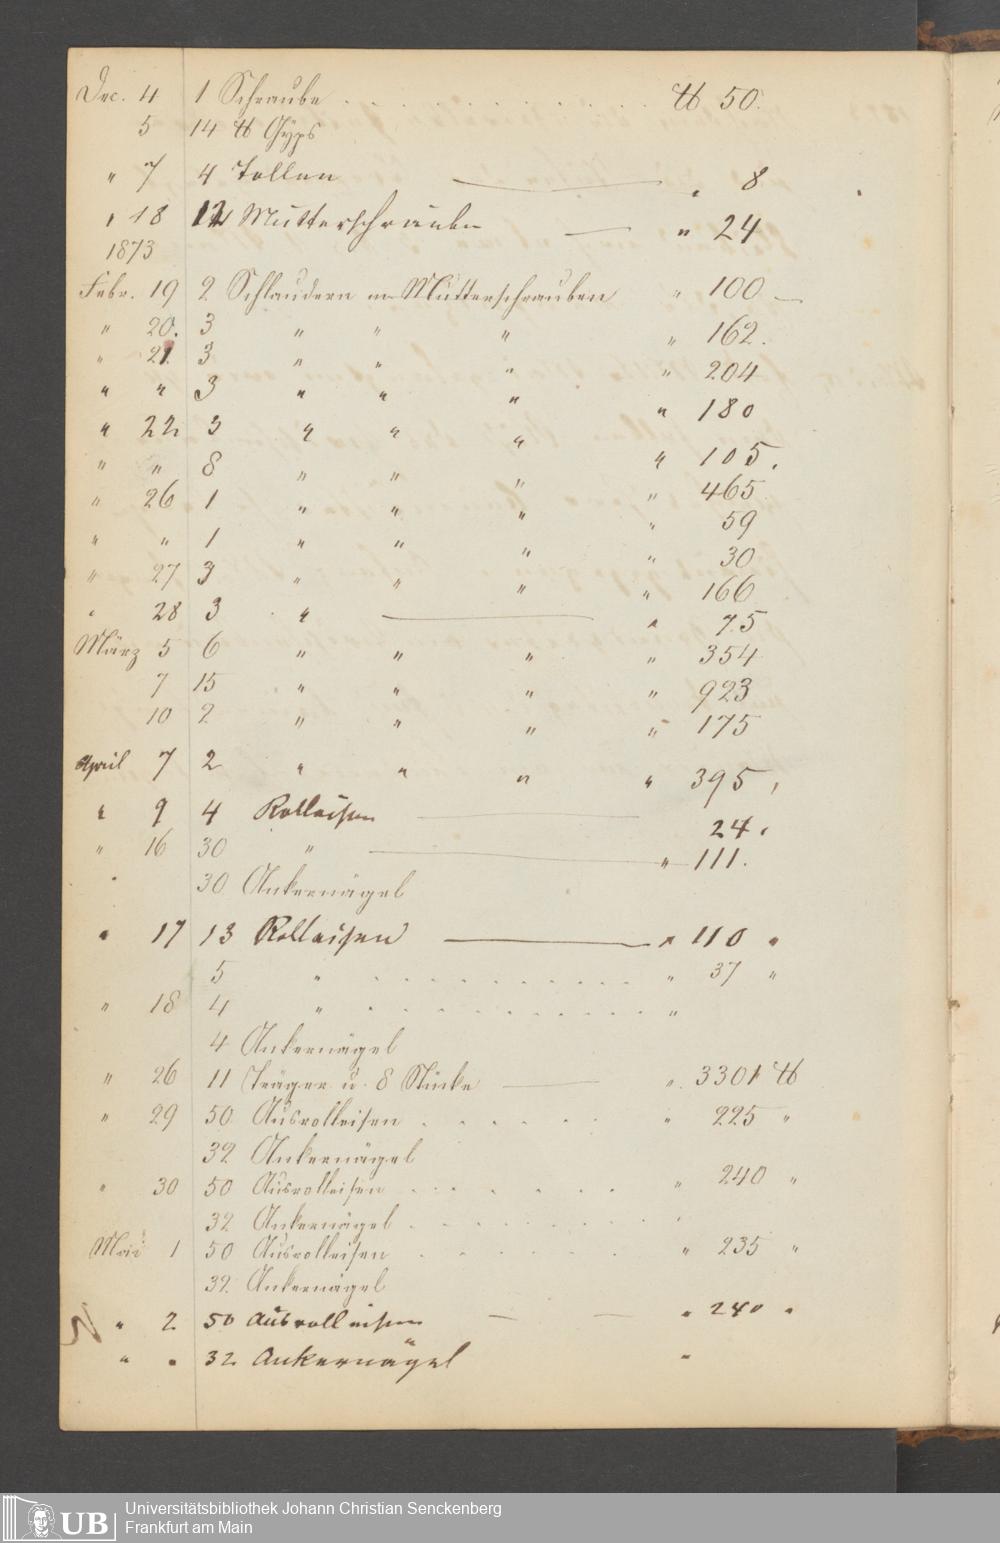 Dec. 4 1 Schraube . . . . . . . . . . . ℔ 50.
5 14 ℔ Gyps
" 7 4 Tollen — " 8
" 18 12 Mutterschrauben — " 24
1873
Febr. 19 2 Schlaudern m Mutterschrauben " 100 —
" 20. 3 " " " " 162.
" 21. 3 " " " " 204
" " 3 " " " " 180
" 22 3 " " " " 105.
" " 8 " " " " 465
" 26 1 " " " " 59
" " 1 " " " " 30
" 27 3 " " " " 166
" 28 3 " — " 75
März 5 6 " " " " 354
7 15 " " " " 923
10 2 " " " " 175
April 7 2 " " " " 395,
" 9 4 Rolleisen — 24.
" 16 30 " — " 111.
30 Ankernägel
" 17 13 Rolleisen — " 110 "
5 " . . . . . . . . . . " 37 "
" 18 4 " . . . . . . . . . . "
4 Ankernägel
" 26 11 Träger u. 8 Stücke — " 3301 ℔
" 29 50 Ausrolleisen . . . . . . " 225 "
32 Ankernägel
" 30 50 Ausrolleisen . . . . . . " 240 "
32 Ankernägel . . . . . . . . "
Mai 1 50 Ausrolleisen . . . . . . " 235 "
32 Ankernägel
" 2 50 Ausrolleisen — — " 240 "
" " 32 Ankernägel "
UB
Universitätsbibliothek Johann Christian Senckenberg
Frankfurt am Main